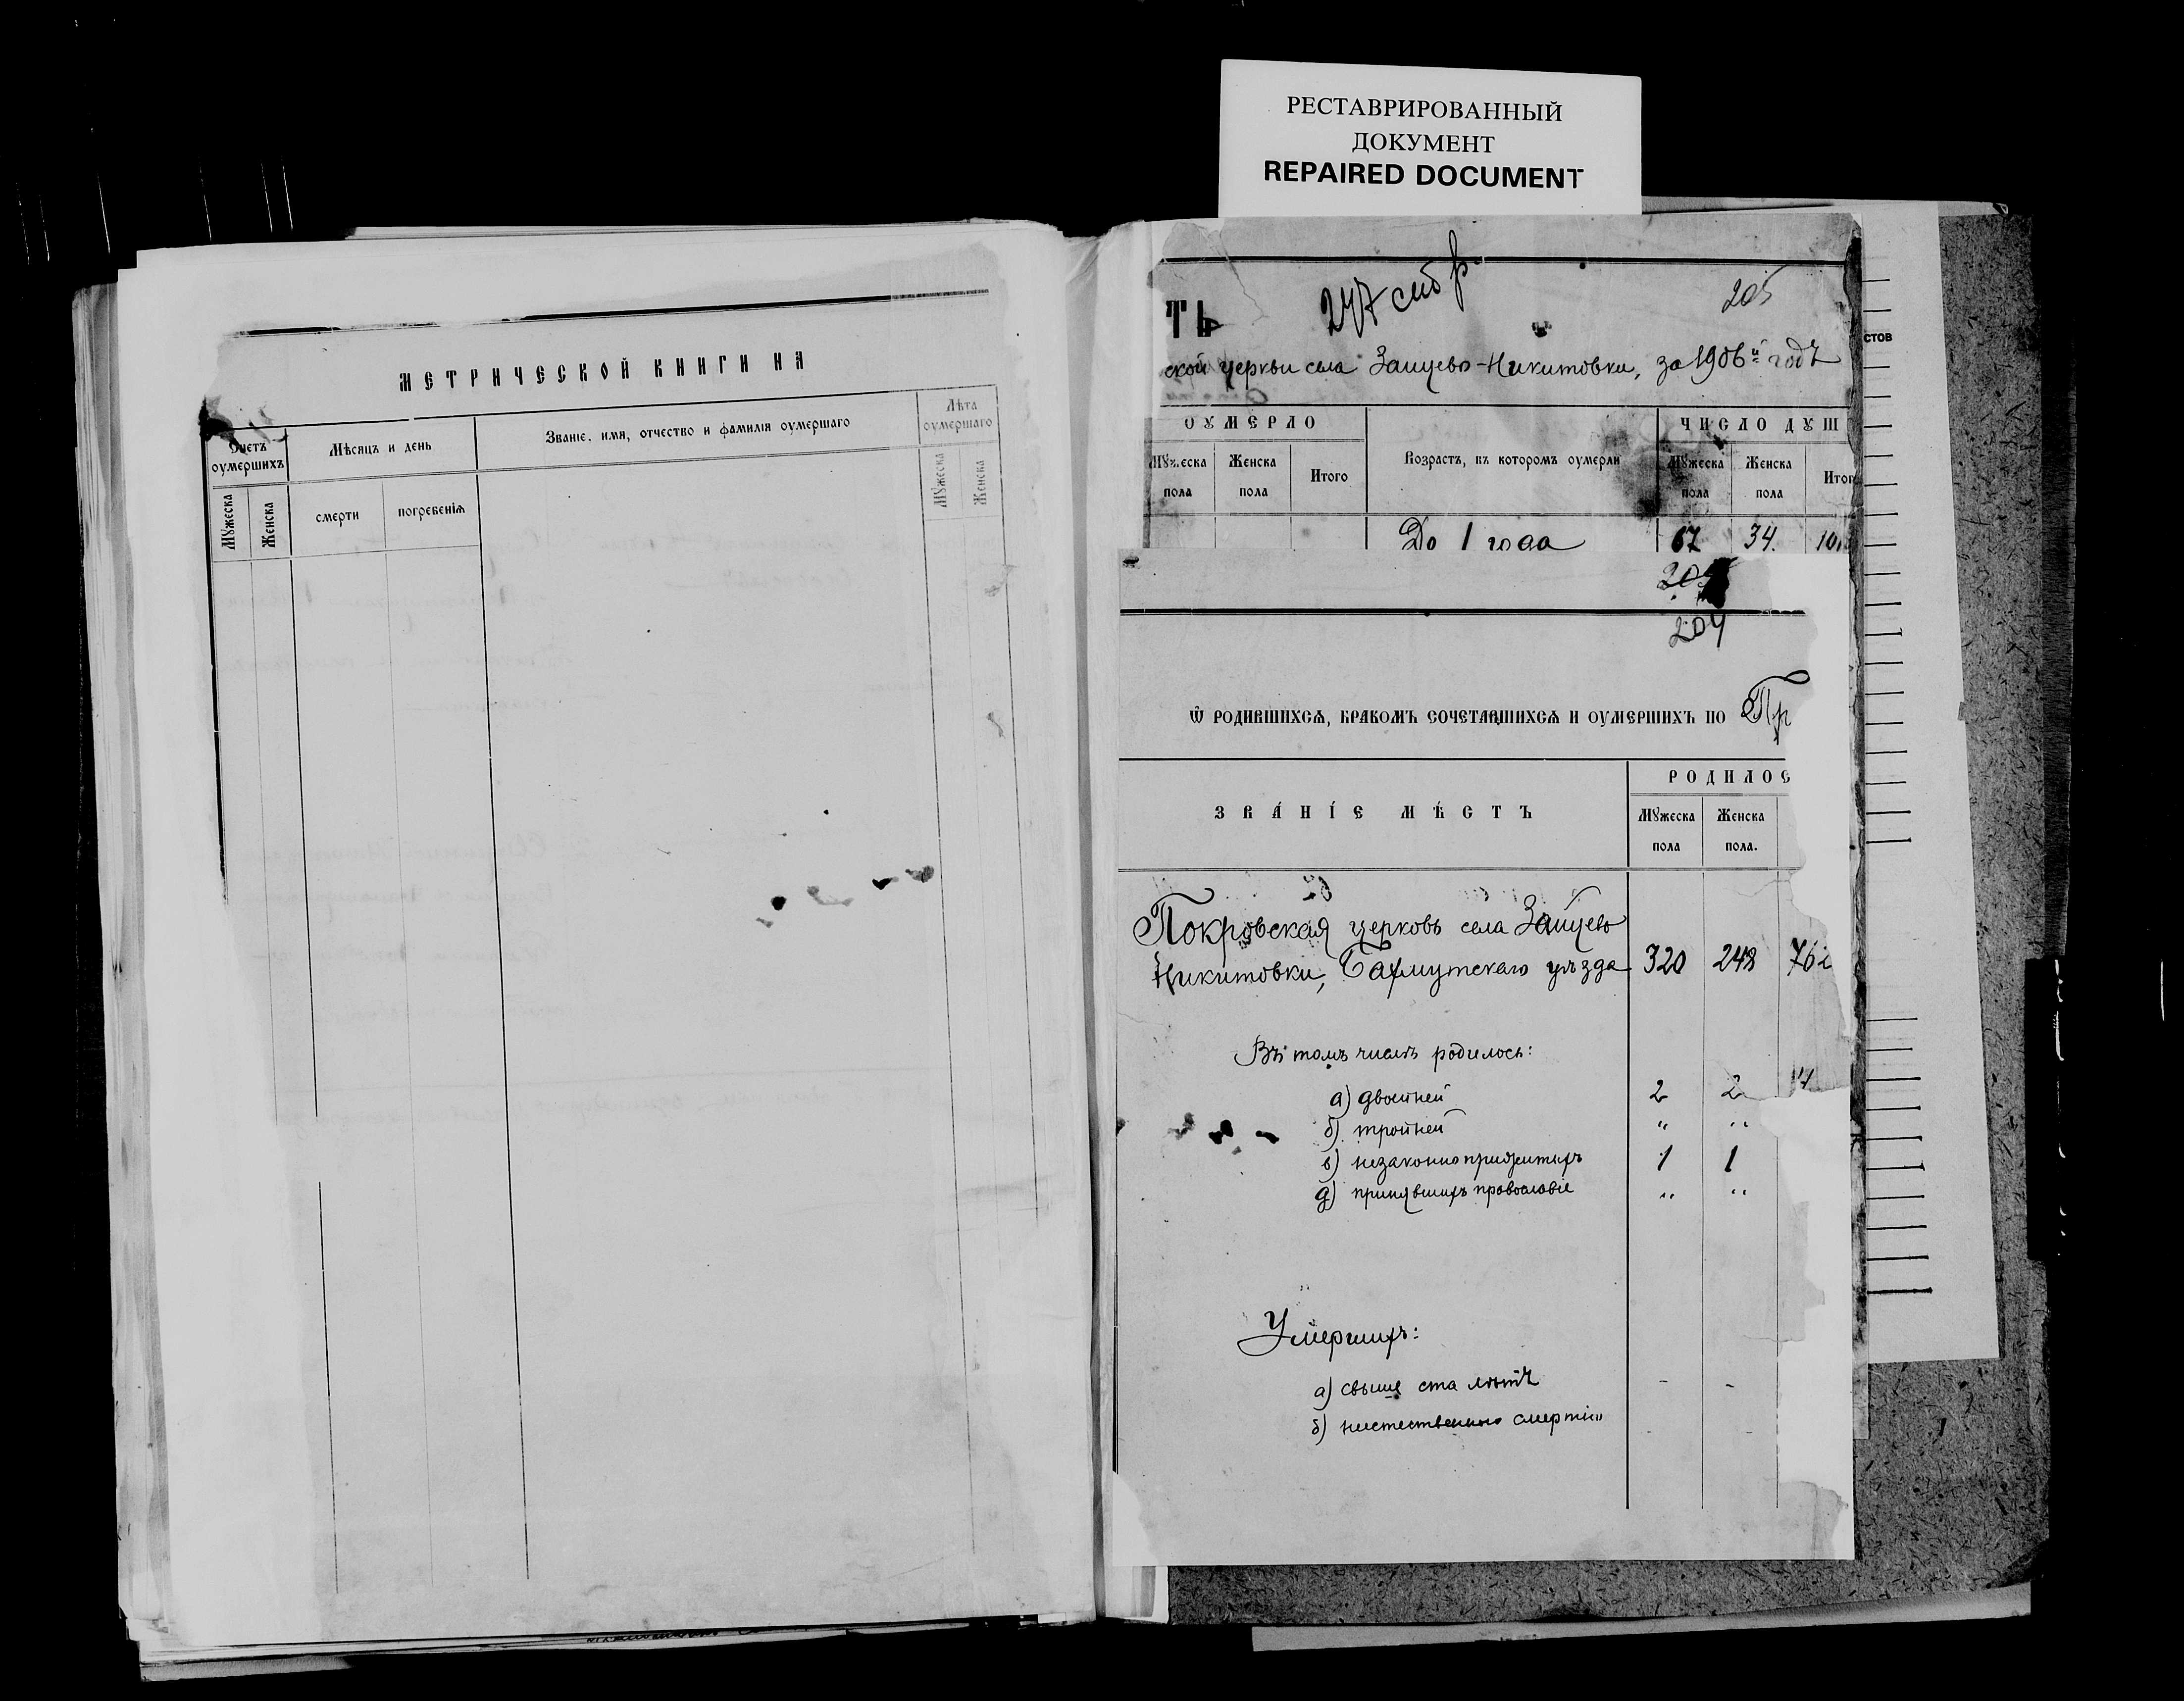 РЕСТАВРИРОВАННЫЙ
ДОКУМЕНТ
REPAIRED DOCUMENT
МЕТРИЧЕСКОЙ КНИГИ НА
Счетъ оумершихъ
Мѣсяцъ и день
Званіе, имя, отчество и фамилія оумершаго
Лѣта оумершаго
Мꙋжеска
Женска
смерти
погребенія
Мꙋжеска
Женска
ТЬ
247
205
ской церкви села Зайцево-Никитовки, за 1906й годъ
ОУМЕРЛО
Возрастъ, въ которомъ оумерли
ЧИСЛО ДУШ
Мꙋжеска пола
Женска пола
Итого
Мꙋжеска пола
Женска пола
Итог
До 1 года
67
34.
204
СТОВ
Ѿ РОДИВШИХСѦ, БРАКОМЪ СОЧЕТАВШИХСѦ И ОУМЕРШИХЪ ПО Пр
ЗВА́НІЕ МѢСТЪ
РОДИЛОС
Мꙋжеска пола
Женска пола.
Покровская церковь села Зайцево
Никитовки, Бахмутскаго уѣзда 320 248 762
Въ томъ числѣ родилось:
а) двойней 2 2
б) тройней " "
в) незаконноприжитыхъ 1 1
д) принявшихъ православіе " "
Умершихъ:
а) свыше ста лѣтъ - -
б) неестественною смертію - -